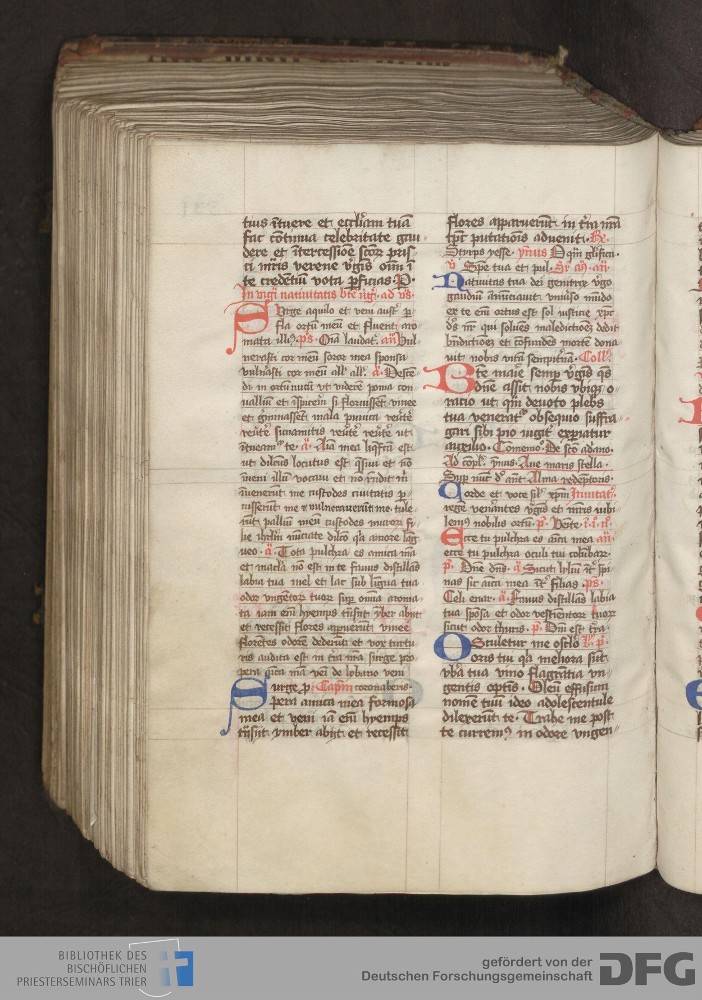 tuus ītuere et ecclīam tuā
fac cōtinua celebritate gau
dere et ītercessiōe scōr pris
te credētiū vota pficias. P.
In vigī nativitatis bte vgī ad vs
Surge aquilo et veni aust p
fla ortū meū et fluent aro
mata illi ps Oīa laudat añ Vul
nerasti cor meū soror mea sponsa
vulnasti cor meū all all a Descē
di in ortū nucū vt viderē poma con
valliū et īspicerē si floruissēt vinee
et gīminassēt mala punica revte
revte sunamitis revte revte ut
ītueam te a Aīa mea liqfca est
ut dilcus locutus est qsivi et nō
inveni illū vocavi et nō rndit m
invenerūt me custodes civitatis p
cusserūt me et vulneraverūt me tule
rūt palliū meū custodes muror fi
lie ihrlm nūciate dilco qa amore lāg
ueo a Tota pulchra es amica mea
et macla nō est in te favus distillās
labia tua mel et lac sub ligua tua
odor vngētor tuor sup omia aroma
ta iam em hyemps trāsiit ymber abiit
et recessit flores appuerūt vinee
florētes odorē dederūt et vox turtu
ris audita est in tra nra surge pro
pera amica mea veni de lybano veni
Surge p Caplm coronaberis
pera amica mea formosa
mea et veni iā em hyemps
trāsiit ymber abiit et recessit
flores apparuerūt in tra nra
tps putatiōis advenit. Re.
Styrps yesse ymus O qm glific
v Spe tua et pul
Nativitas tua dei genitrix vgo
gaudiū ānūciavit unīvso mūdo
ex te em ortus est sol iusticie xpc
ds nr qui solvēs maledictōez dedit
bndictiōez et cōfundēs mortē dona
vit nobis vitā sempitnā. Coll
Bte marie semp vgis qs
dne assit nobis vbiqz o
racio ut qm devoto plebs
tua venerat obsequio suffra
gari sibi pio iugit expiatur
auxilio. Comemo De scō adano.
Ad copl ymus Ave maris stella
Sup nuc d añt Alma redeptoris
Corde et voce sil xpm Invitat
rege venantes vgīs et mris iubi
lem nobilis ortū p Veīte i ī n
Ecce tu pulchra es amica mea añ
ecce tu pulchra oculi tui colūbar
p Dne dns a Sicut lyliū itr spi
nas sic amica mea itr filias ps
Celi enar a Favus distillās labia
tua sposa et odor vestimētor tuor
sicut odor thuris p Dni est tra
Osculetur me osclo
oris tui qa meliora sūt
vbra tua vino flagrātia vn
gentis optīs Oleu effusum
nomē tuū ideo adolescentule
dilexerūt te Trahe me post
te currem in odore vngen
BIBLIOTHEK DES
BISCHÖFLICHEN
PRIESTERSEMINARS TRIER
gefördert von der
Deutschen Forschungsgemeinschaft
DFG